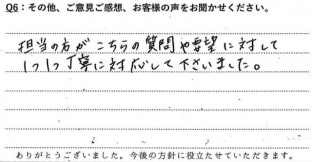 Q6：その他、ご意見ご感想、お客様の声をお聞かせください。
担当の方がこちらの質問や要望に対して
1つ1つ丁寧に対応して下さいました。
ありがとうございました。今後の方針に役立たせていただきます。